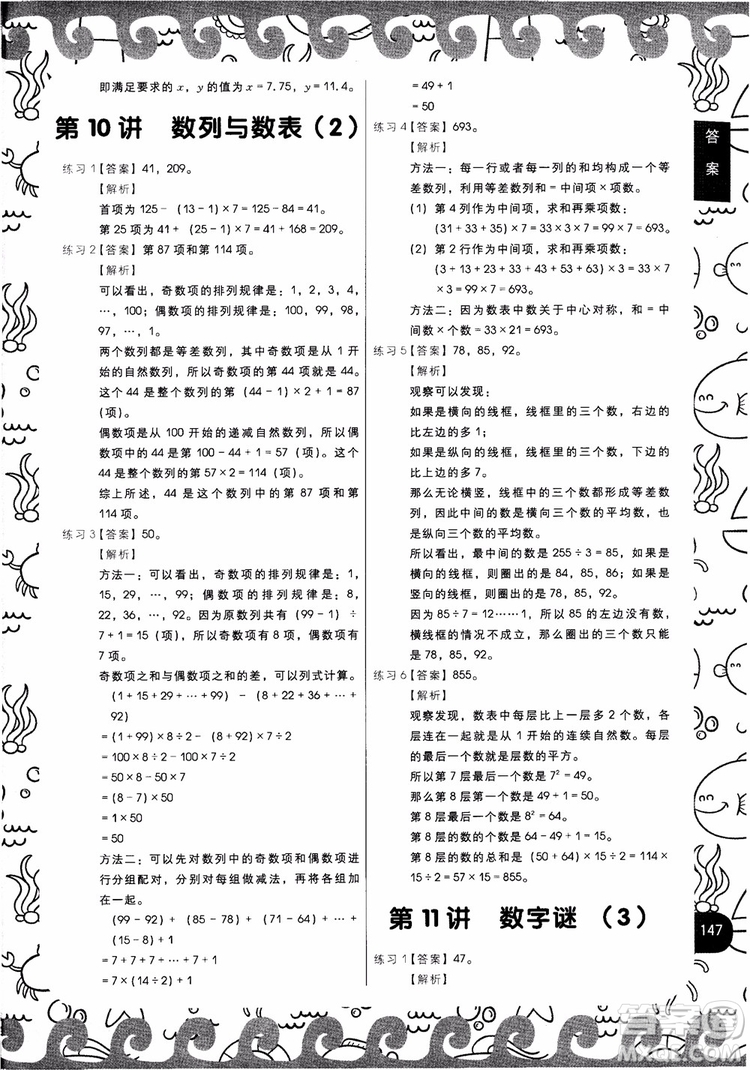 即满足要求的 x，y 的值为 x＝7.75，y＝11.4。
第 10 讲 数列与数表（2）
练习 1【答案】41，209。
【解析】
首项为 125－（13－1）×7＝125－84＝41。
第 25 项为 41＋（25－1）×7＝41＋168＝209。
练习 2【答案】第 87 项和第 114 项。
【解析】
可以看出，奇数项的排列规律是：1，2，3，4，
…，100；偶数项的排列规律是：100，99，98，
97，…，1。
两个数列都是等差数列，其中奇数项是从 1 开
始的自然数列，所以奇数项的第 44 项就是 44。
这个 44 是整个数列的第（44－1）×2＋1＝87
（项）。
偶数项是从 100 开始的递减自然数列，所以偶
数项中的 44 是第 100－44＋1＝57（项）；这个
44 是整个数列的第 57×2＝114（项）。
综上所述，44 是这个数列中的第 87 项和第
114 项。
练习 3【答案】50。
【解析】
方法一：可以看出，奇数项的排列规律是：1，
15，29，…，99；偶数项的排列规律是：8，
22，36，…，92。因为原数列共有（99－1）÷
7＋1＝15（项），所以奇数项有 8 项，偶数项有
7 项。
奇数项之和与偶数项之和的差，可以列式计算。
（1＋15＋29＋…＋99）－（8＋22＋36＋…＋
92）
＝（1＋99）×8÷2－（8＋92）×7÷2
＝100×8÷2－100×7÷2
＝50×8－50×7
＝（8－7）×50
＝1×50
＝50
方法二：可以先对数列中的奇数项和偶数项进
行分组配对，分别对每组做减法，再将各组加
在一起。
（99－92）＋（85－78）＋（71－64）＋…＋
（22－15）＋（8－1）＋1
＝7＋7＋7＋…＋7＋7＋1
＝7×（14÷2）＋1
＝49＋1
＝50
练习 4【答案】693。
【解析】
方法一：每一行或者每一列的和均构成一个等
差数列，利用等差数列和＝中间项×项数。
（1）第 4 列作为中间项，求和再乘项数：
（31＋33＋35）×7＝33×3×7＝99×7＝693。
（2）第 2 行作为中间项，求和再乘项数：
（3＋13＋23＋33＋43＋53＋63）×3＝33×7
×3＝33×21＝693。
方法二：因为数表中数关于中心对称，和＝中
间数×个数＝33×21＝693。
练习 5【答案】78，85，92。
【解析】
观察可以发现：
如果是横向的线框，线框里的三个数，右边的
比左边的多 1；
如果是纵向的线框，线框里的三个数，下边的
比上边的多 7。
那么无论横竖，线框中的三个数都形成等差数
列，因此中间的数是横向三个数的平均数，也
是纵向三个数的平均数。
所以看出，最中间的数是 255÷3＝85，如果是
横向的线框，则圈出的是 84，85，86；如果是
竖向的线框，则圈出的是 78，85，92。
因为 85÷7＝12……1，所以 85 的左边没有数，
横线框的情况不成立，那么圈出的三个数只能
是 78，85，92。
练习 6【答案】855。
【解析】
观察发现，数表中每层比上一层多 2 个数，各
层连在一起就是从 1 开始的连续自然数。每层
的最后一个数就是层数的平方。
所以第 7 层最后一个数是 7²。
那么第 8 层第一个数是 49＋1＝50。
第 8 层最后一个数是 8²＝64。
第 8 层的数的个数是 64－49＋1＝15。
第 8 层的数的总和是（50＋64）×15÷2＝114×
15÷2＝57×15＝855。
第 11 讲 数字谜（3）
练习 1【答案】47。
【解析】
答案
147